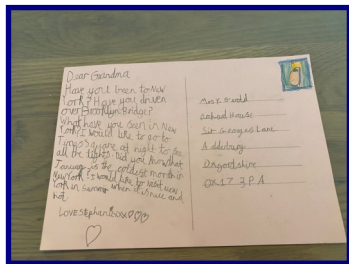 Dear Grandma
Have you been to New
York? Have you driven
over Brooklyn Bridge?
What have you seen in New
York? I would like to go to
Times Square at night to see
all the lights. Did you know that
January is the coldest month in
New York? I would like to visit New
York in summer when it is nice and
hot
Love Stephanie xx
Mrs Y Dodd
House
Sir Georges Lane
Adderbury
Oxfordshire
OX17 3PA